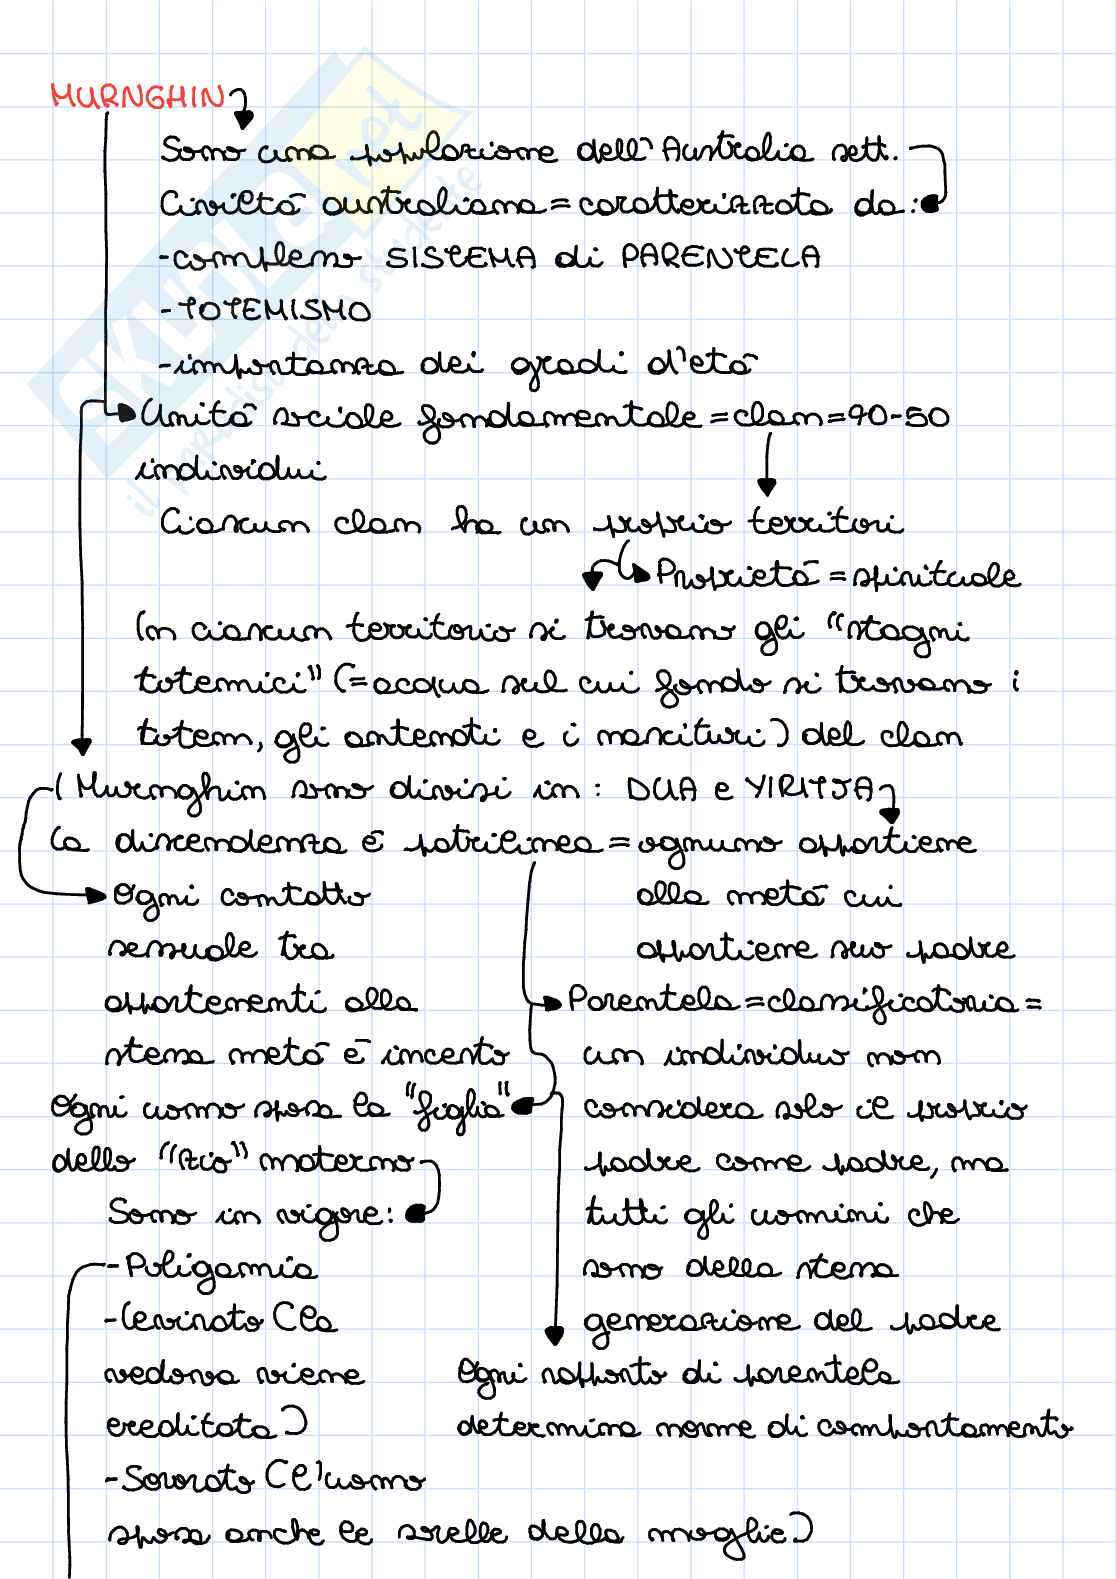 MURNGHIN
Sono una popolazione dell'Australia sett.
Civiltá australiana = caratterizzata da:
-complesso SISTEMA di PARENTELA
-TOTEMISMO
-importanza dei gradi d'etá
Unitá sociale fondamentale = clan = 40-50
individui
Ciascun clan ha un proprio territori
Proprietá = spirituale
In ciascun territorio si trovano gli "stagni
totemici" (= acqua sul cui fondo si trovano i
totem, gli antenati e i nascituri) del clan
I Murnghin sono divisi in: DUA e YIRITJA
La discendenza é patrilinea = ognuno appartiene
alla metá cui
appartiene suo padre
Ogni contatto
sessuale tra
appartenenti alla
stessa metá é incesto
Parentela = classificatoria =
un individuo non
considera solo il proprio
padre come padre, ma
tutti gli uomini che
sono della stessa
generazione del padre
Ogni uomo sposa la "figlia"
dello "zio" materno
Sono in vigore:
-Poligamia
-Levirato (la
vedova viene
ereditata)
-Sororato (l'uomo
sposa anche le sorelle della moglie)
Ogni rapporto di parentela
determina norme di comportamento
SKUOLA.net
il paradiso dello studente